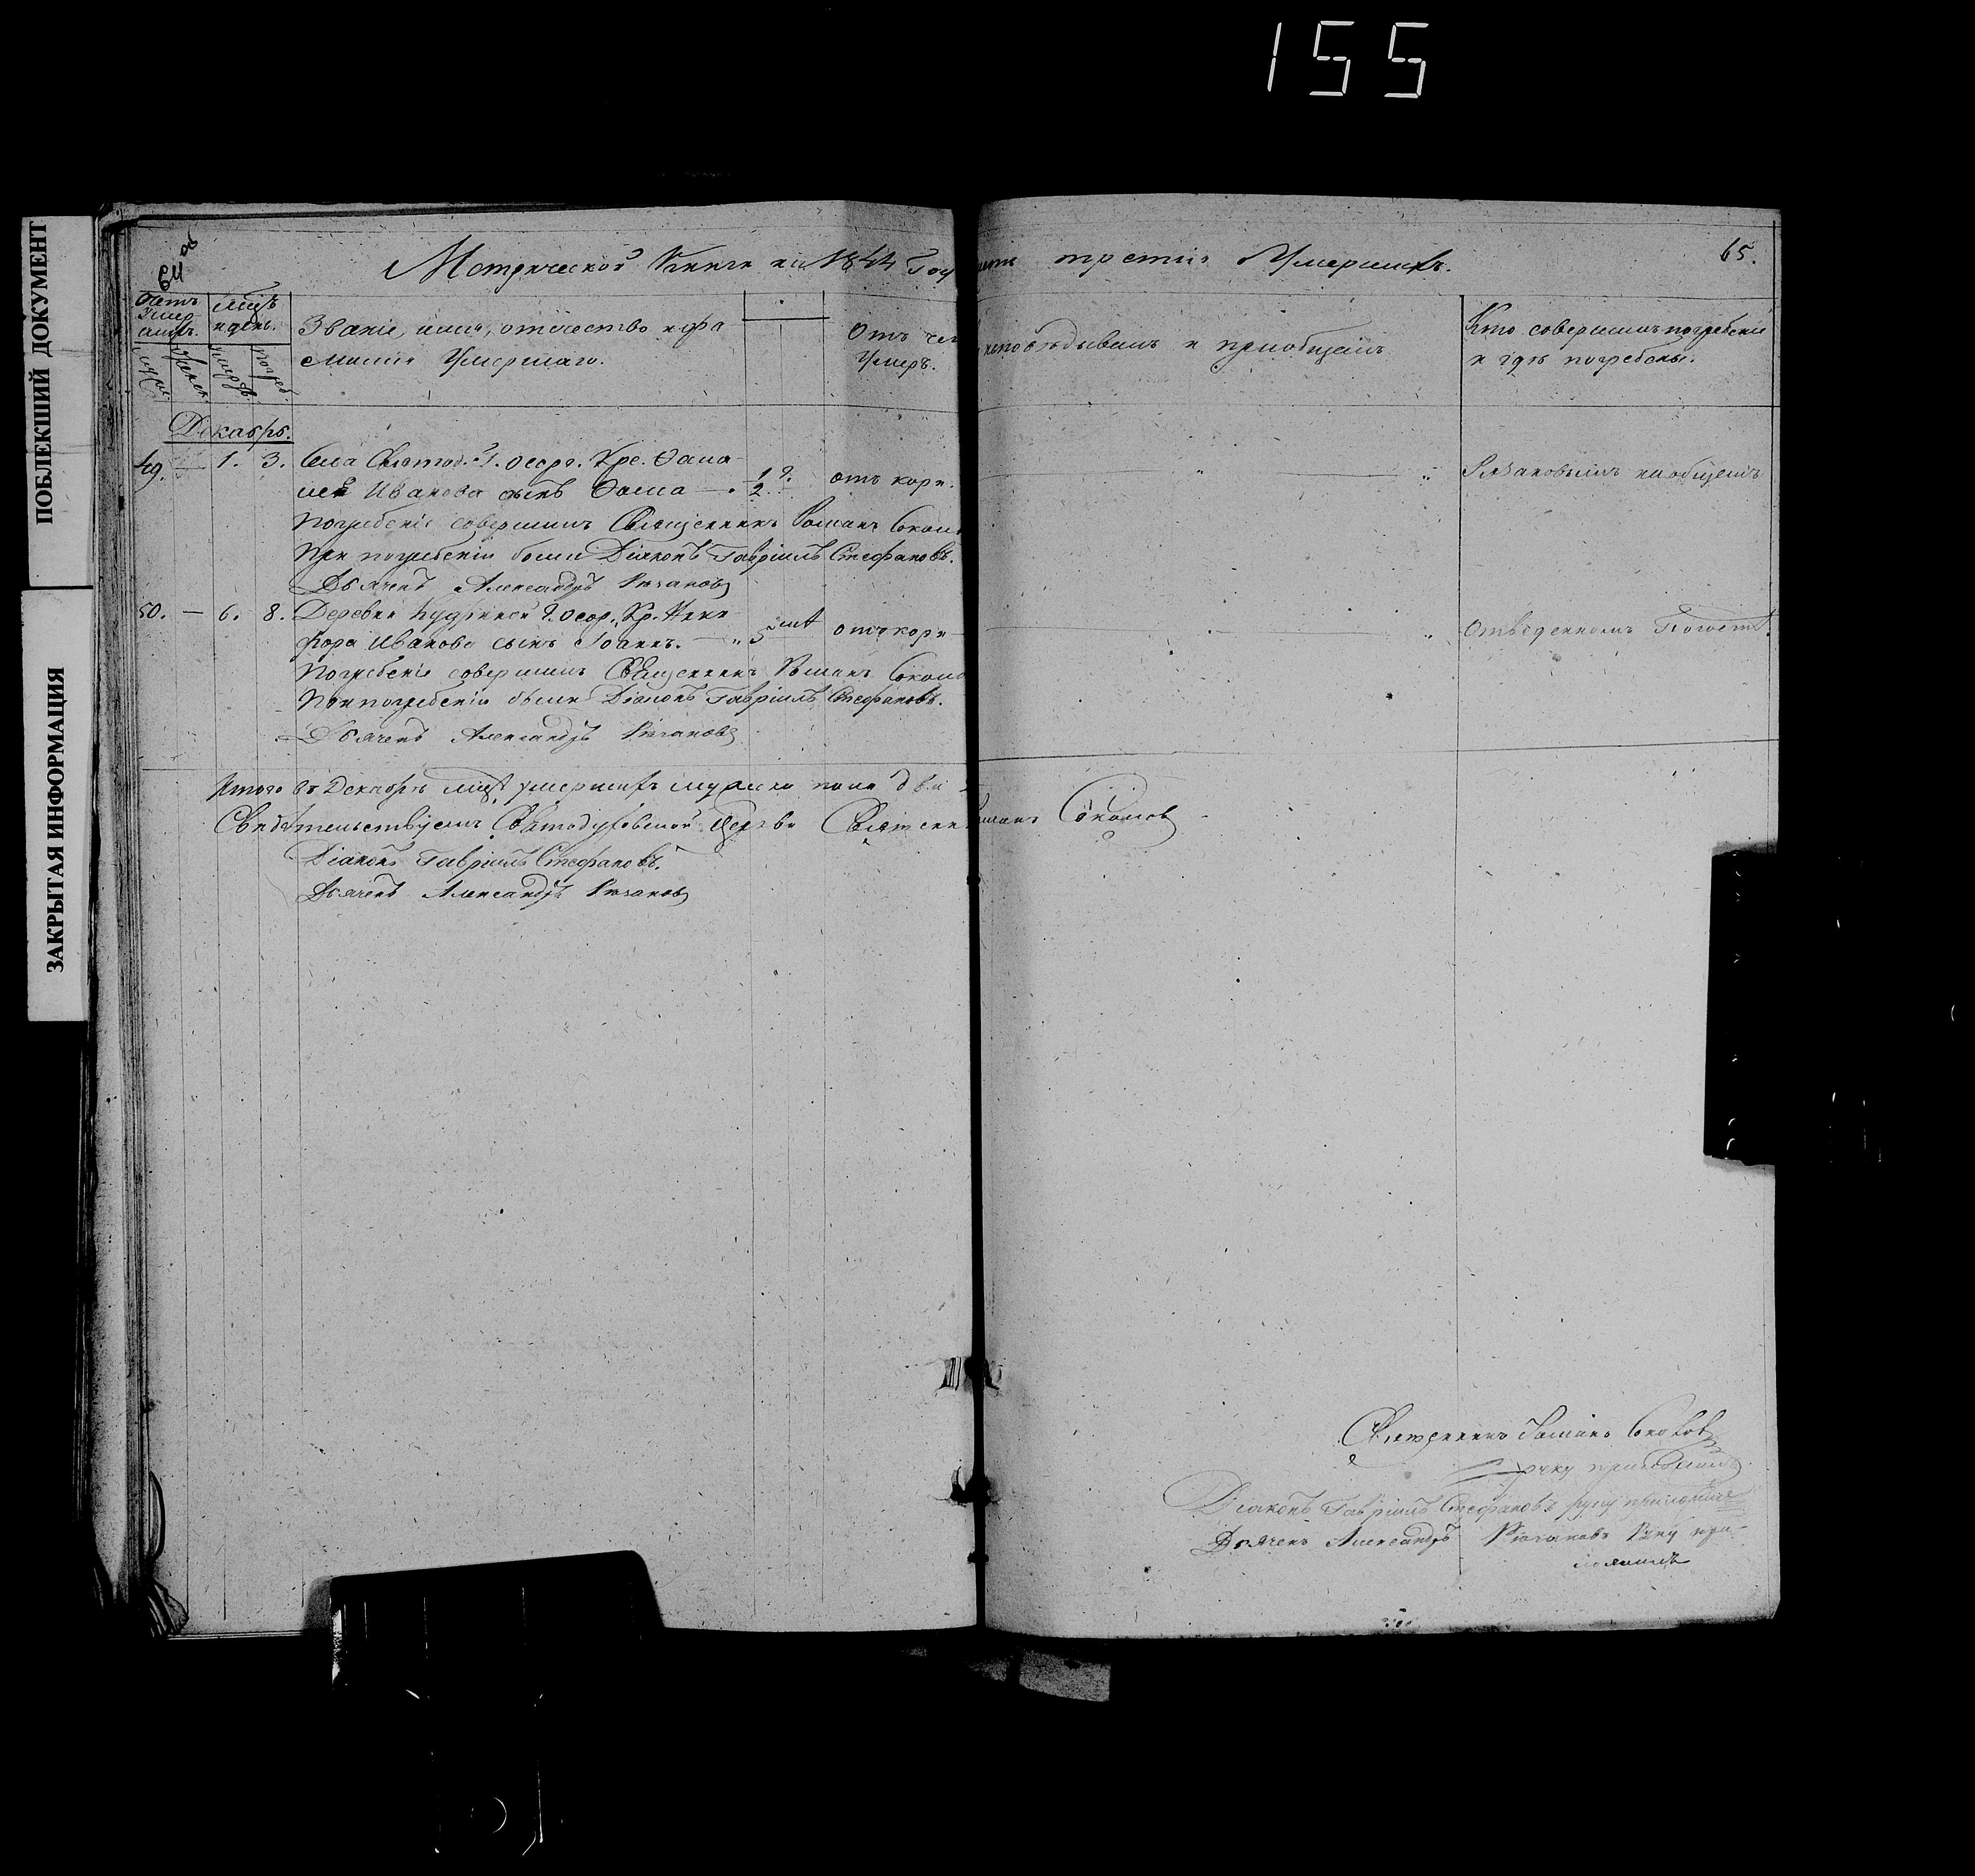 155
ПОБЛЕКШИЙ ДОКУМЕНТ
ЗАКРЫТАЯ ИНФОРМАЦИЯ
64 об
Метрической Книги на 1844 Год
третiя Умершихъ.
65.
Счетъ умершихъ.
Мцъ и день.
Званiе, имя, отчество и фа
милiя Умершаго.
Отъ чего
Умеръ.
исповѣдывалъ и прiобщалъ
Кто совершилъ погребенiе
и гдѣ погребены.
Декабрь.
49. — 1. 3. Села Святод. Г. осс. Кре. Ѳома
Иванова сынъ Ѳома — 1 2 отъ кори.
на общемъ
Погребенiе совершилъ Священникъ Романъ Сокол
При погребенiи были Дiаконъ Гаврiилъ Стефановъ.
Дьячекъ Александръ
50. — 6. 8. Деревни Кр. Ники
фора Иванова сынъ Iоаннъ. — 5 отъ кори
Отведенномъ Погостѣ.
Погребенiе совершилъ Священникъ Романъ Соколо
При погребенiи были Дiаконъ Гаврiилъ Стефановъ.
Дьячекъ Александръ
Итого въ Декабрѣ мцѣ умершихъ мужеска пола два
Свидѣтельствуемъ Святодуховской Церкви Священн Романъ Соколов
Дiаконъ Гаврiилъ Стефановъ.
Дьячекъ Александръ
Священникъ Романъ Соколов
руку приложилъ
Дiаконъ Гаврiилъ Стефановъ руку приложилъ
Дьячекъ Александръ руку при-
ложилъ